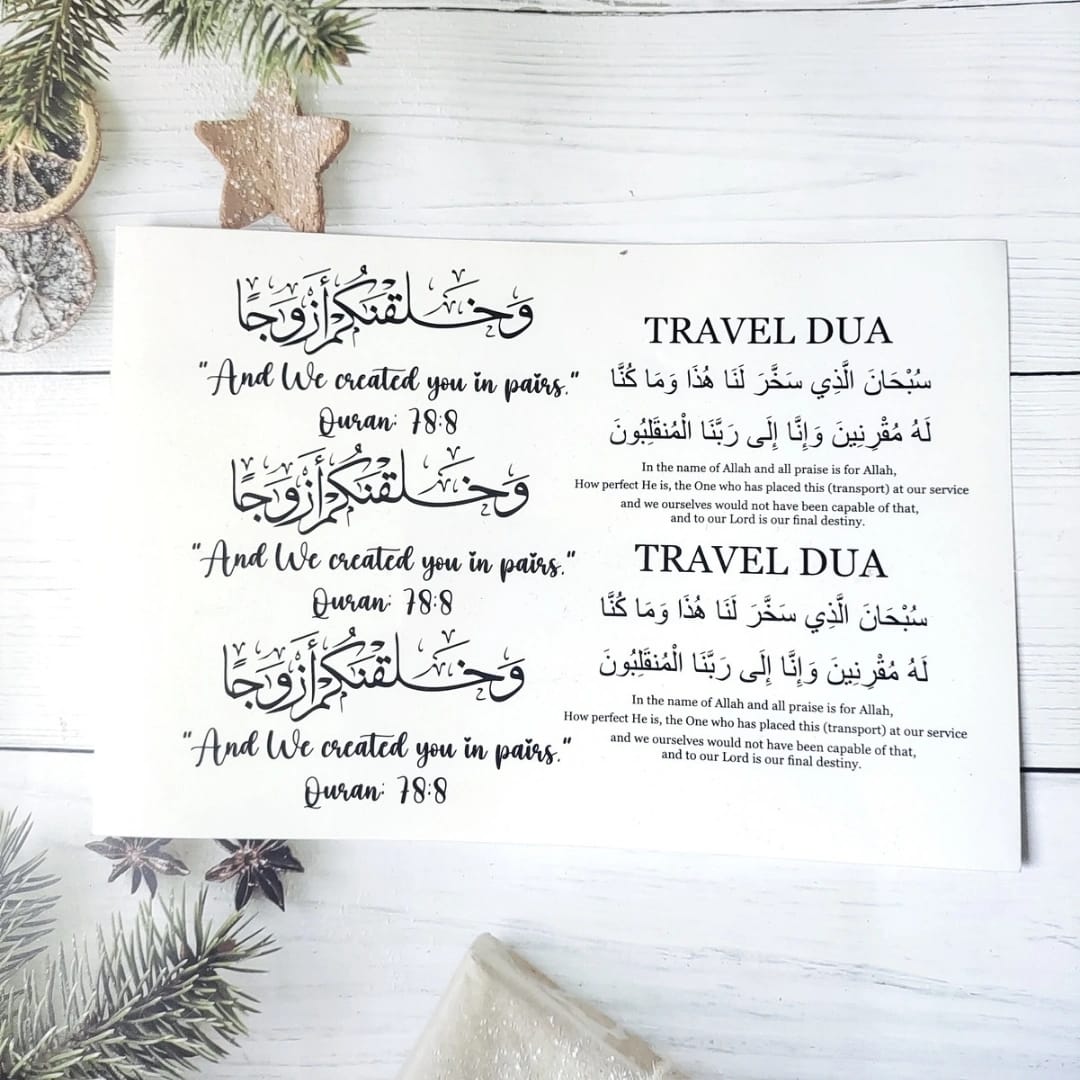 وَخَلَقْنَكُمْ أَزْوَجًا
"And We created you in pairs."
Quran: 78:8
وَخَلَقْنَكُمْ أَزْوَجًا
"And We created you in pairs."
Quran: 78:8
وَخَلَقْنَكُمْ أَزْوَجًا
"And We created you in pairs."
Quran: 78:8
TRAVEL DUA
سُبْحَانَ الَّذِي سَخَّرَ لَنَا هُذَا وَمَا كُنَّا
لَهُ مُقْرِنِينَ وَإِنَّا إِلَى رَبَّنَا الْمُنقَلِبُونَ
In the name of Allah and all praise is for Allah,
How perfect He is, the One who has placed this (transport) at our service
and we ourselves would not have been capable of that,
and to our Lord is our final destiny.
TRAVEL DUA
سُبْحَانَ الَّذِي سَخَّرَ لَنَا هُذَا وَمَا كُنَّا
لَهُ مُقْرِنِينَ وَإِنَّا إِلَى رَبَّنَا الْمُنقَلِبُونَ
In the name of Allah and all praise is for Allah,
How perfect He is, the One who has placed this (transport) at our service
and we ourselves would not have been capable of that,
and to our Lord is our final destiny.